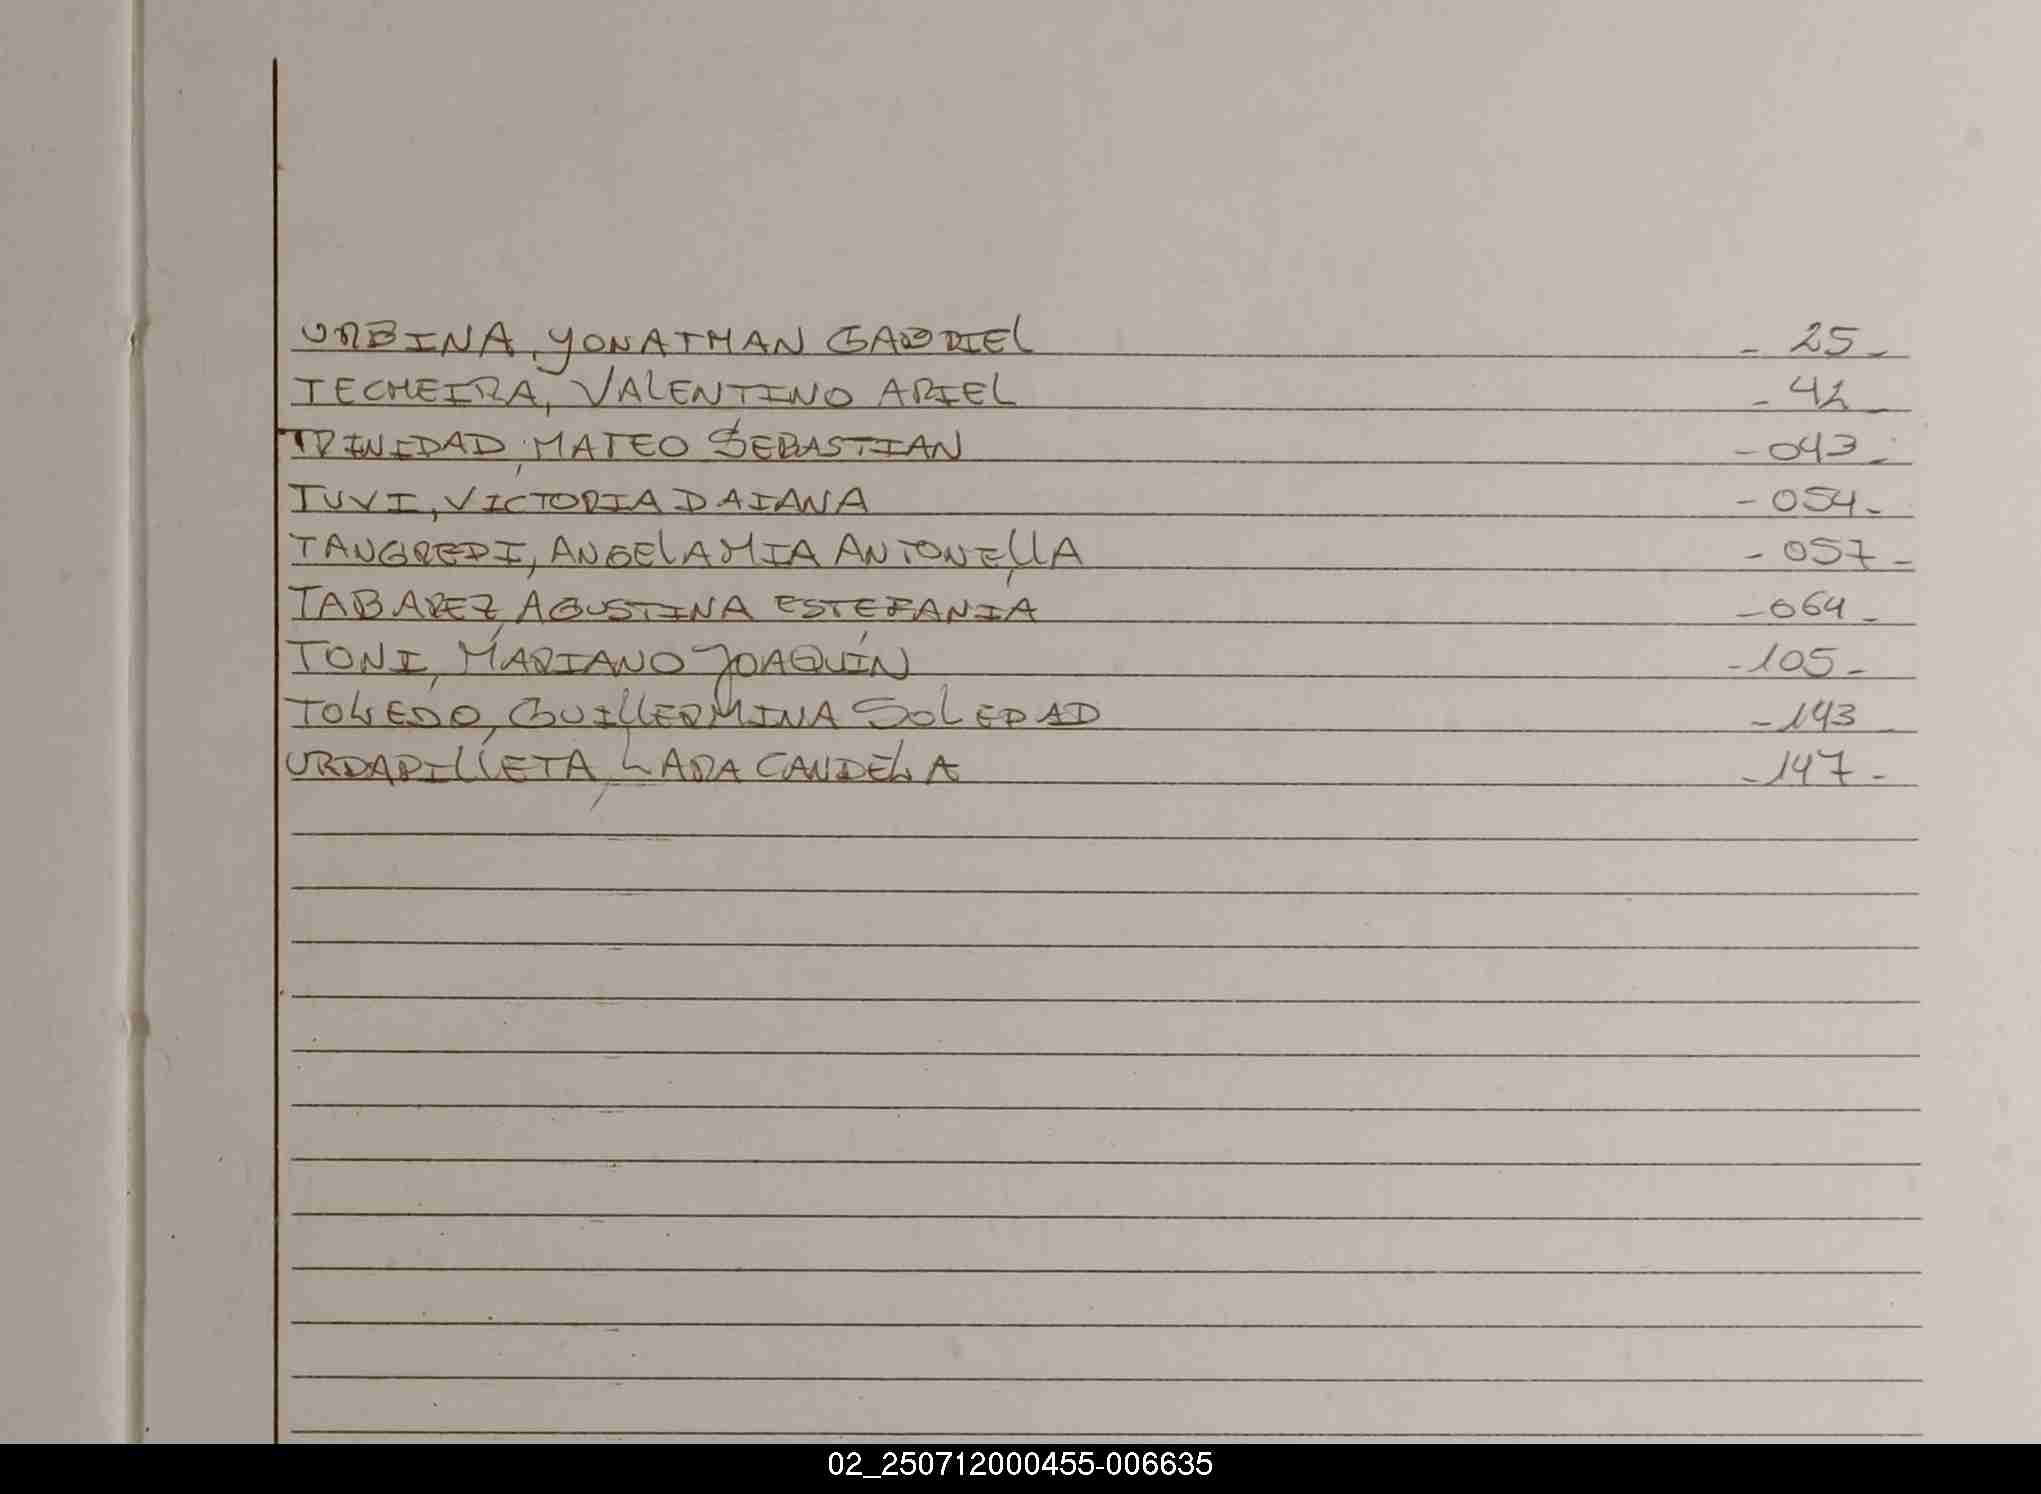 URBINA, YONATHAN GABRIEL - 25 -
TECHEIRA, VALENTINO ARIEL - 42 -
TRINIDAD, MATEO SEBASTIAN - 043 -
TUVI, VICTORIA DAIANA - 054 -
TANGREDI, ANGELA MIA ANTONELLA - 057 -
TABAREZ, AGUSTINA ESTEFANIA - 064 -
TONI, MARIANO JOAQUÍN - 105 -
TOLEDO, GUILLERMINA SOLEDAD - 143
URDAPILLETA, LARA CANDELA - 147 -
02_250712000455-006635